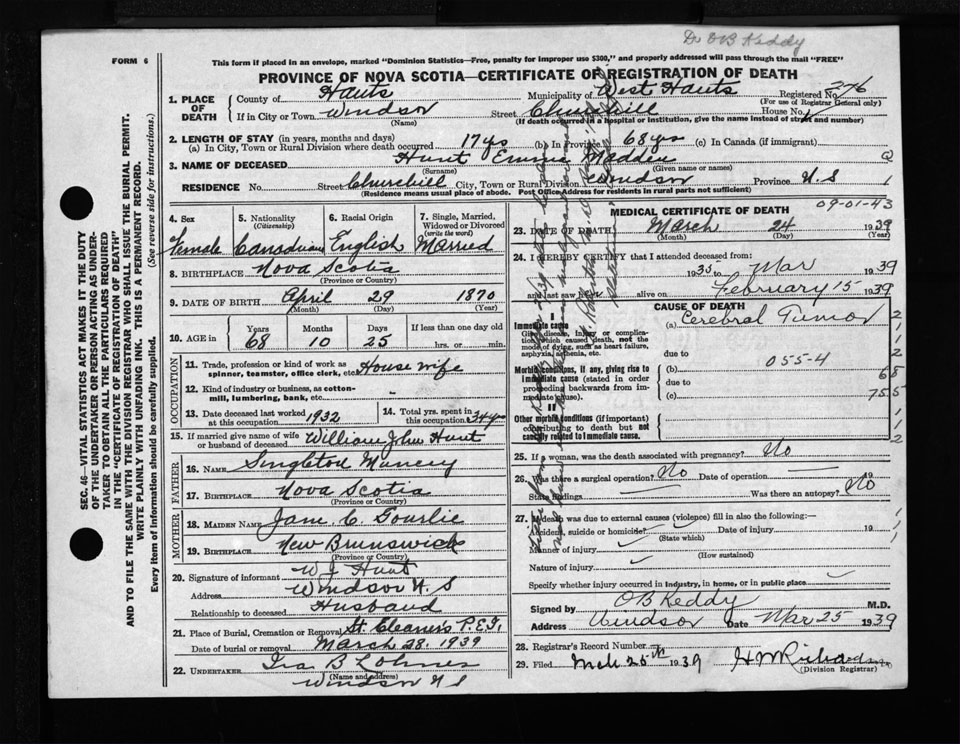 Dr OB Keddy
FORM 6
This form if placed in an envelope, marked "Dominion Statistics—Free, penalty for improper use $300," and properly addressed will pass through the mail "FREE"
PROVINCE OF NOVA SCOTIA—CERTIFICATE OF REGISTRATION OF DEATH
1. PLACE OF DEATH
County of Hants Municipality of West Hants Registered No. 276
(For use of Registrar General only)
If in City or Town Windsor Street Churchill House No.
(Name) (If death occurred in a hospital or institution, give the name instead of street and number)
2. LENGTH OF STAY (in years, months and days)
(a) In City, Town or Rural Division where death occurred 17 yrs (b) In Province 68 yrs (c) In Canada (if immigrant)
3. NAME OF DECEASED Hunt Emma Madden
(Surname) (Given name or names)
RESIDENCE No. Street Churchill City, Town or Rural Division Windsor Province N.S
(Residence means usual place of abode. Post Office Address for Residents in rural parts not sufficient)
4. Sex Female
5. Nationality (Citizenship) Canadian
6. Racial Origin English
7. Single, Married, Widowed or Divorced (write the word) Married
8. BIRTHPLACE Nova Scotia
(Province or Country)
9. DATE OF BIRTH April 29 1870
(Month) (Day) (Year)
10. AGE in Years Months Days If less than one day old
68 10 25 hrs. or min.
OCCUPATION
11. Trade, profession or kind of work as spinner, teamster, office clerk, etc. House wife
12. Kind of industry or business, as cotton-mill, lumbering, bank, etc.
13. Date deceased last worked at this occupation 1932
14. Total yrs. spent in this occupation 34 yrs
15. If married give name of wife or husband of deceased William John Hunt
FATHER
16. NAME
17. BIRTHPLACE Nova Scotia
MOTHER
18. MAIDEN NAME Jane C. Gourlie
19. BIRTHPLACE New Brunswick
(Province or Country)
20. Signature of informant W J Hunt
Address Windsor N.S
Relationship to deceased Husband
21. Place of Burial, Cremation or Removal St Eleanor's P.E.I.
Date of burial or removal March 28. 1939
22. UNDERTAKER Ira B Lohnes
(Name and address)
Windsor N S
MEDICAL CERTIFICATE OF DEATH
09-01-43
23. DATE OF DEATH March 24 1939
(Month) (Day) (Year)
24. I HEREBY CERTIFY that I attended deceased from
1935 to Mar 1939
and last saw h alive on February 15 1939
CAUSE OF DEATH
I
Immediate cause
Give disease, injury or complication which caused death, not the mode of dying, such as heart failure, asphyxia, asthenia, etc.
(a) Cerebral Tumor
due to 055-4
Morbid conditions, if any, giving rise to immediate cause (stated in order proceeding backwards from immediate cause).
(b)
due to
(c)
II
Other morbid conditions (if important) contributing to death but not causally related to immediate cause.
25. If a woman, was the death associated with pregnancy? No
26. Was there a surgical operation? No Date of operation 19
State findings Was there an autopsy? No
27. If death was due to external causes (violence) fill in also the following:—
Accident, suicide or homicide? Date of injury 19
(State which)
Manner of injury
(How sustained)
Nature of injury
Specify whether injury occurred in industry, in home, or in public place
Signed by OB Keddy M.D.
Address Windsor Date Mar 25 1939
28. Registrar's Record Number
29. Filed Mch 25th 1939
(Division Registrar)
SEC. 46—VITAL STATISTICS ACT MAKES IT THE DUTY
OF THE UNDERTAKER OR PERSON ACTING AS UNDER-
TAKER TO OBTAIN ALL THE PARTICULARS REQUIRED
IN THE "CERTIFICATE OF REGISTRATION OF DEATH"
AND TO FILE THE SAME WITH THE DIVISION REGISTRAR WHO SHALL ISSUE THE BURIAL PERMIT.
WRITE PLAINLY WITH UNFADING INK. THIS IS A PERMANENT RECORD.
Every item of information should be carefully supplied. (See reverse side for instructions.)